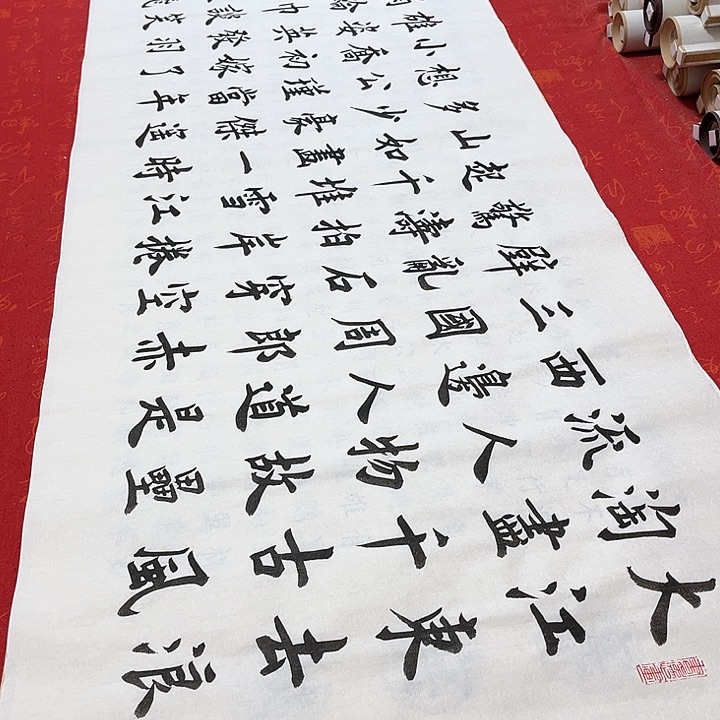 大江東去浪
淘盡千古風
流人物故壘
西邊人道是
三國周郎赤
壁亂石穿空
驚濤拍岸捲
起千堆雪江
山如畫一時
多少豪傑遙
想公瑾當年
小喬初嫁了
雄姿英發羽
綸巾談笑